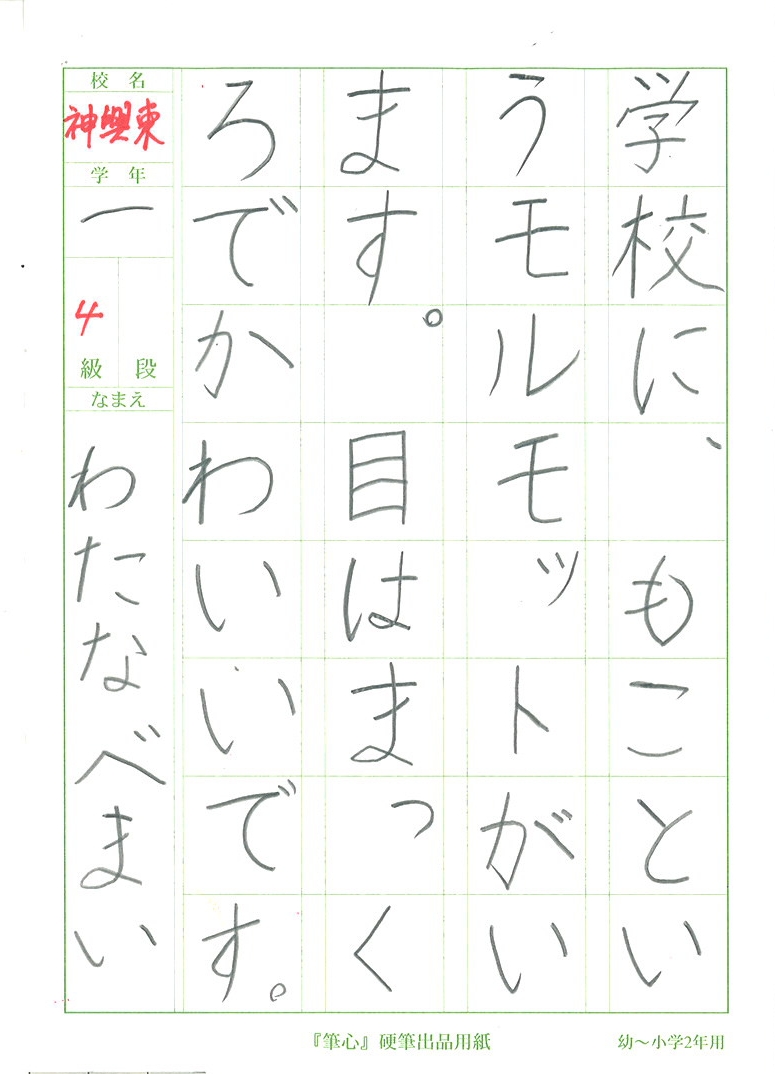 学校に、もこという
モルモットがい
ます。目はまっく
ろでかわいいです。
校名
神興東
学年
一
4
級 段
なまえ
わたなべまい
『筆心』硬筆出品用紙
幼～小学2年用